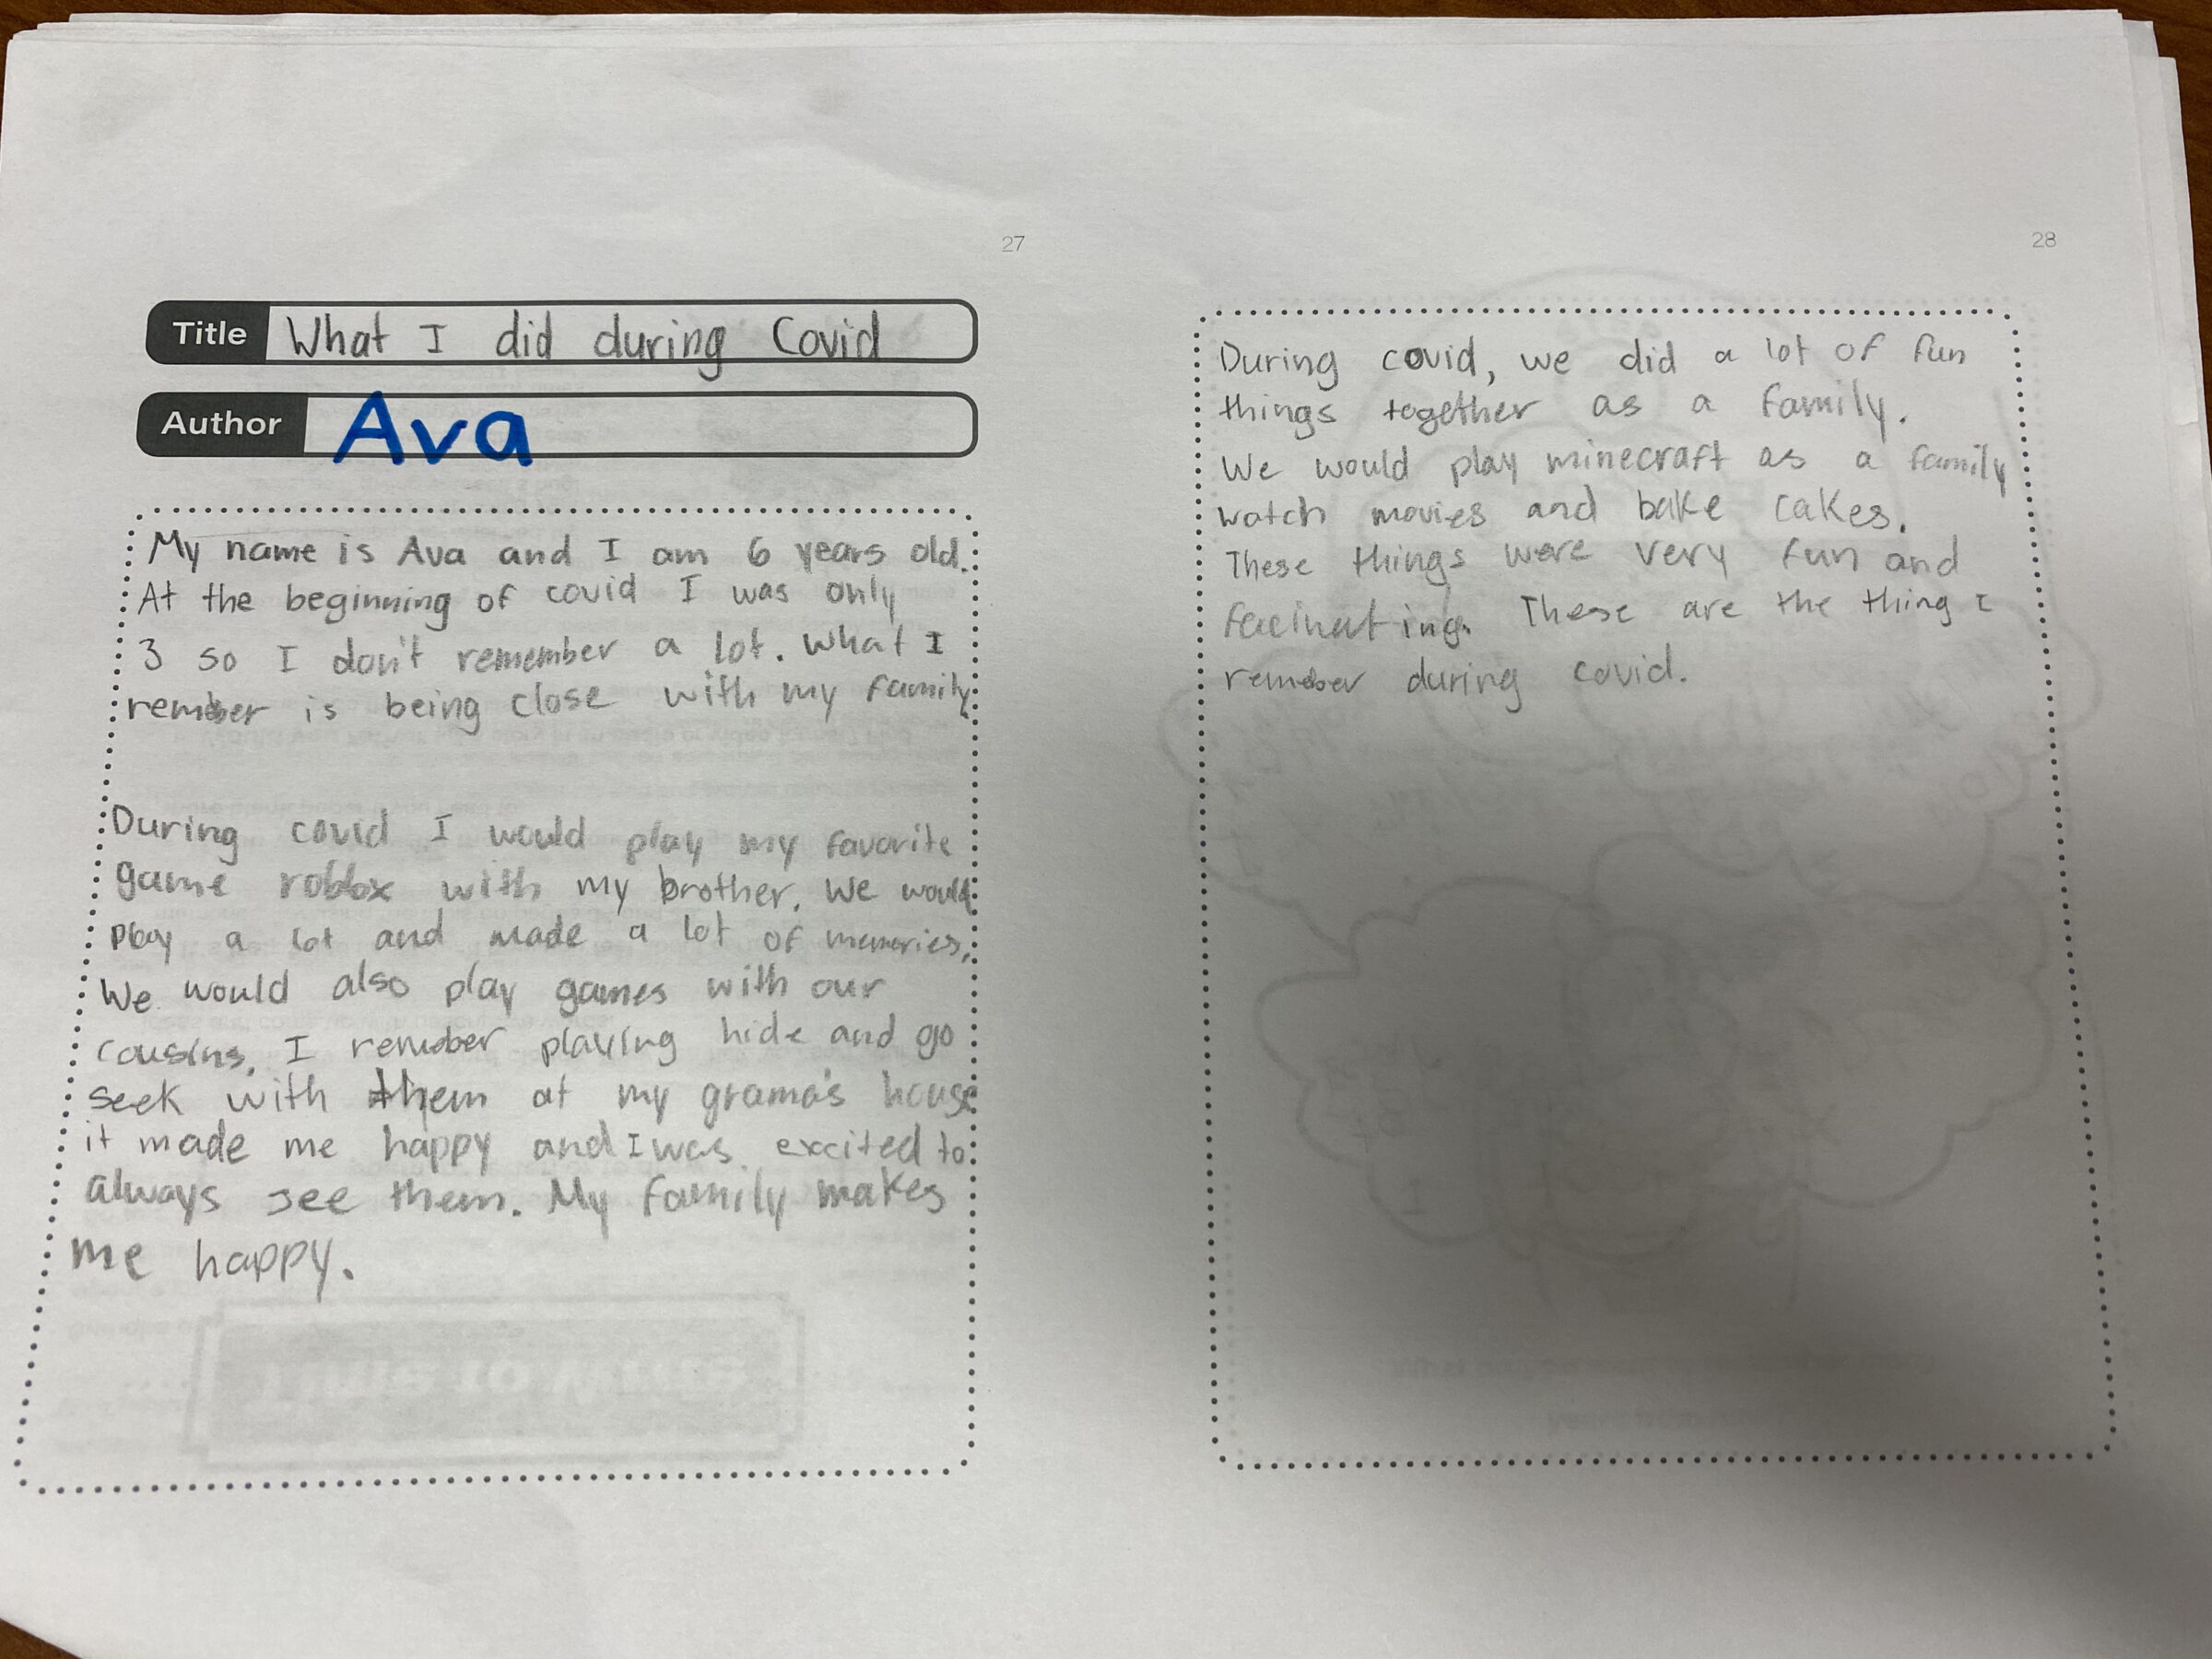 27
Title What I did during Covid
Author Ava
My name is Ava and I am 6 years old.
At the beginning of covid I was only
3 so I don't remember a lot. What I
remember is being close with my family.
During covid I would play my favorite
game roblox with my brother. We would
play a lot and made a lot of memories.
We would also play games with our
cousins. I remember playing hide and go
seek with them at my grama's house
it made me happy and I was excited to
always see them. My family makes
me happy.
28
During covid, we did a lot of fun
things together as a family.
We would play minecraft as a family
watch movies and bake cakes.
These things were very fun and
facinating. These are the thing I
remember during covid.